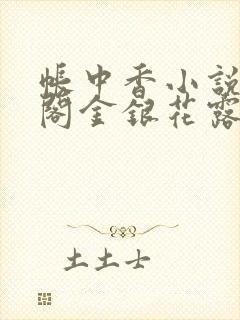 帐中香小說
閣金銀花露
土土士